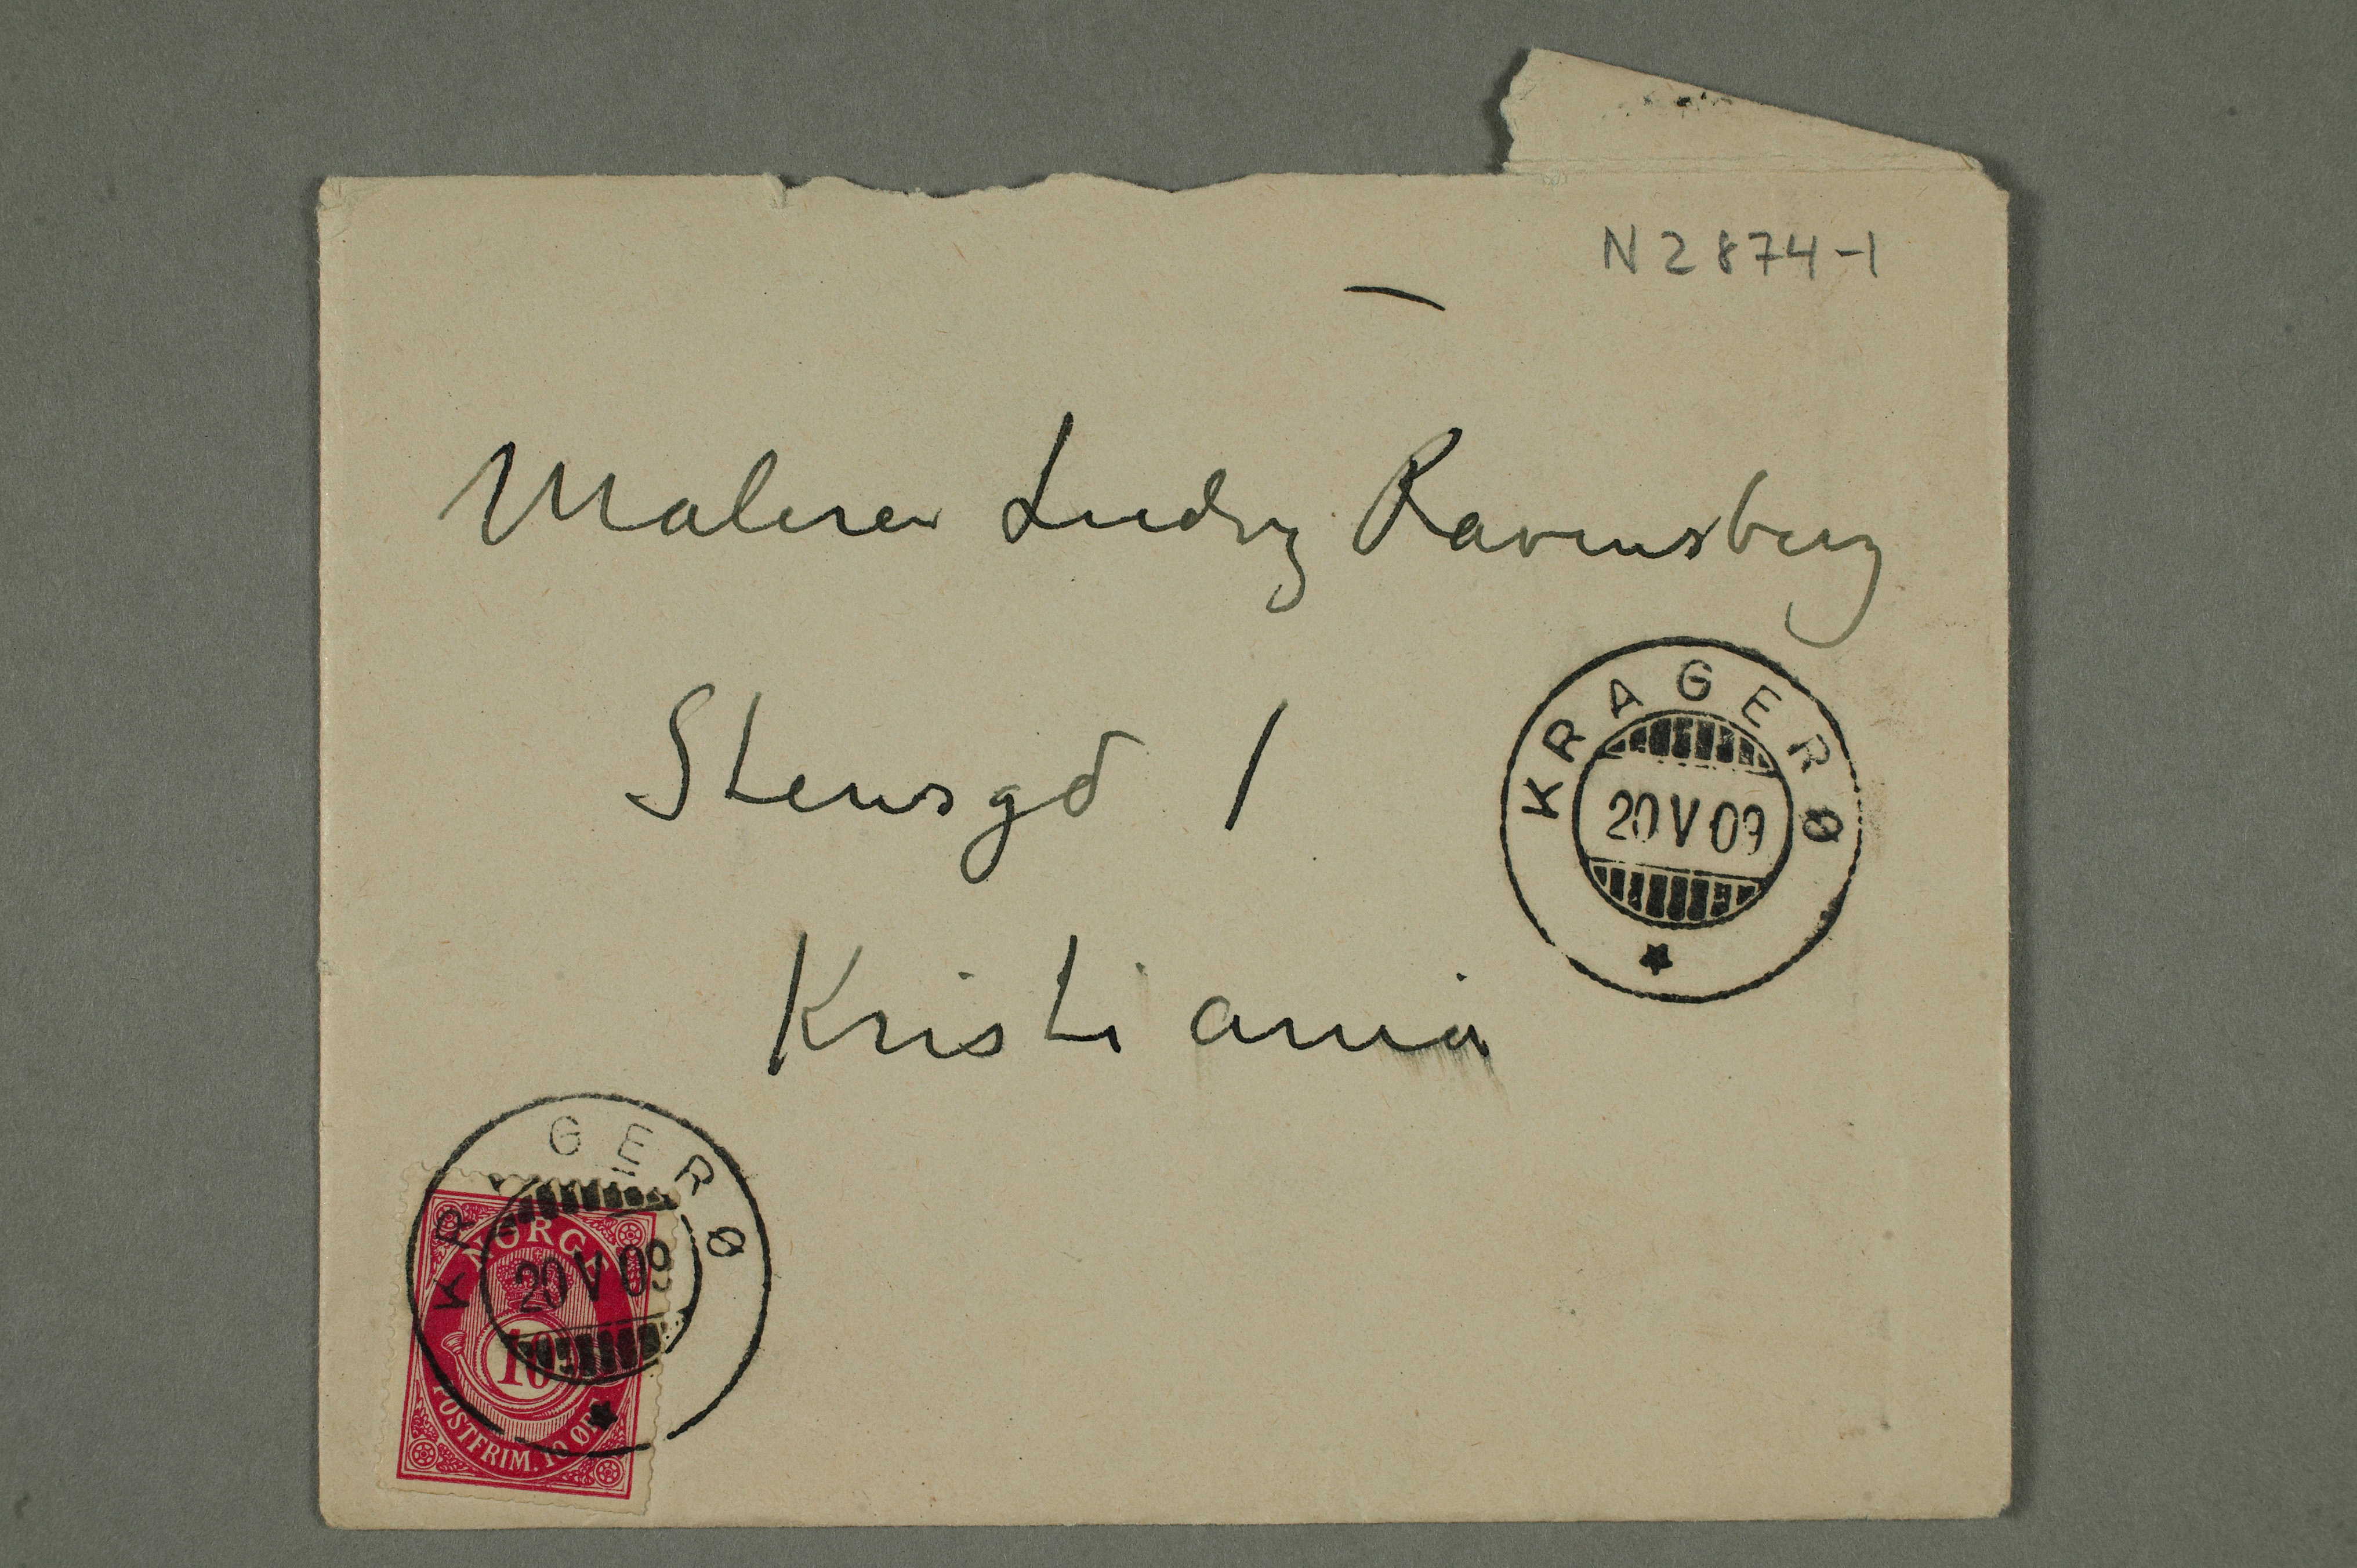 N 2874-1
Maleren Ludvig Ravensberg
Stensgd 1
KRAGERØ
20 V 09
Kristiania
KR GERØ
NORGE
20 V 09
10
POSTFRIM. 10 ØRE